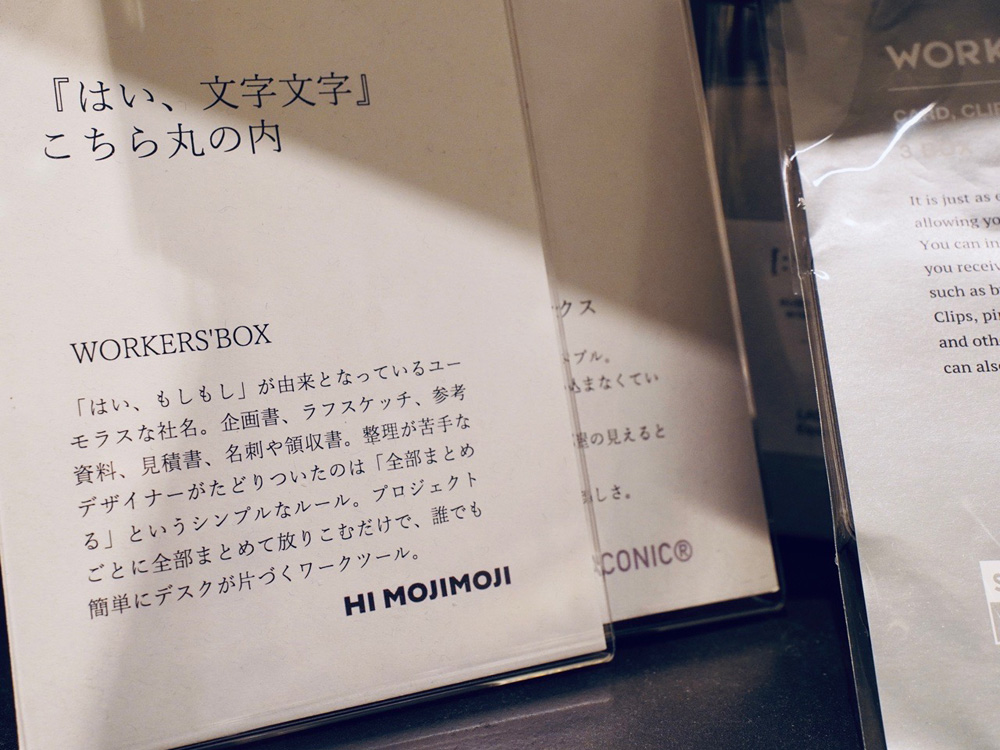 『はい、文字文字』
こちら丸の内
WORKERS'BOX
「はい、もしもし」が由来となっているユー
モラスな社名。企画書、ラフスケッチ、参考
資料、見積書、名刺や領収書。整理が苦手な
デザイナーがたどりついたのは「全部まとめ
る」というシンプルなルール。プロジェクト
ごとに全部まとめて放りこむだけで、誰でも
簡単にデスクが片づくワークツール。
HI MOJIMOJI
ックス
ブル。
込まなくてい
の見えると
しさ。
CONIC®
WORK
CARD, CLIP
3 BOX
It is just as
allowing yo
You can in
you receiv
such as b
Clips, pi
and oth
can also